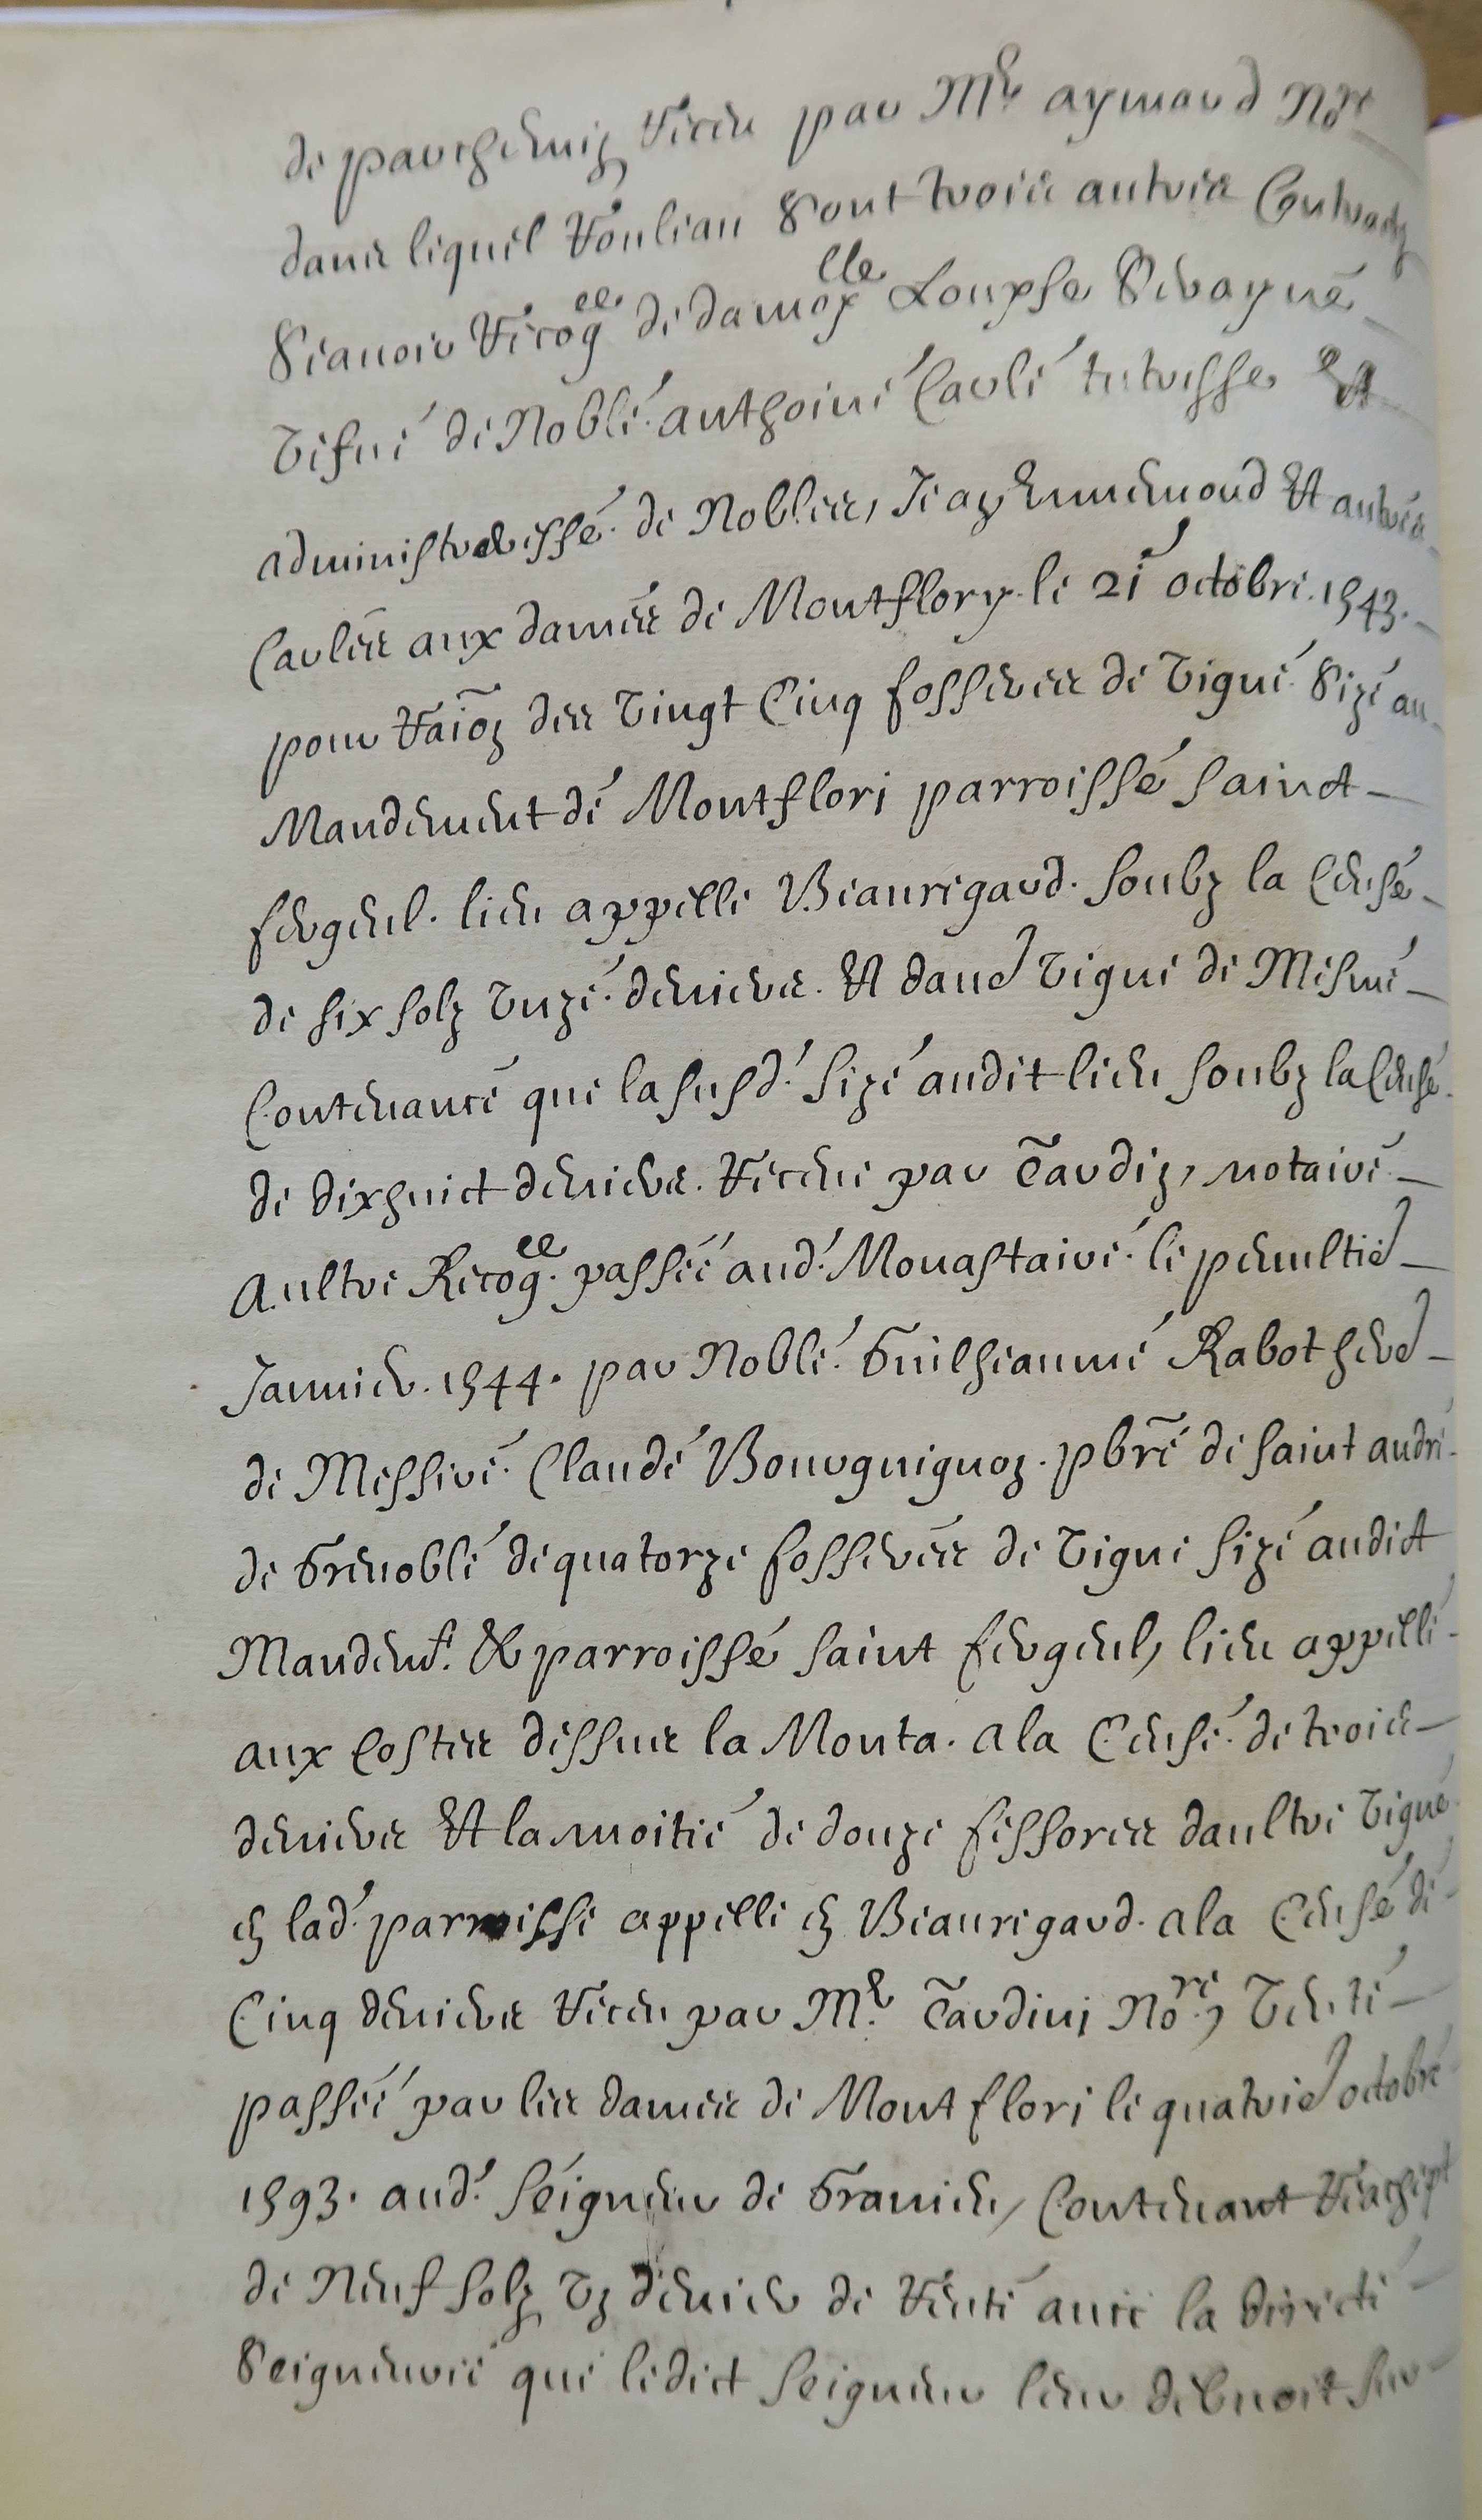 de parchemin, receu par Me aymard Nore
dans lequel Roulleau sont trois autres Contractz
scavoir recogee de damoylle Loupse Seraynne
vefue de Noble anthoine Carle tutrisse et
administraresse de Nobles, Jean Ennemond et autres
Carles aux dames de Montflory le 21 octobre 1543.
pour raion des vingt Cinq fosserees de vigne size au
Mandement de Montflori parroisse sainct
fergeul. lieu appelle Beauregard. soubz la Cense
de six solz unze deniers. et daue vigne de Mesme
Contenance que la susd. size audit lieu soubz la Cense
de dixhuict deniers. receue par Tardin, notaire
Aultre Recogee. passée aud. Monastaire. le penultie
Janvier. 1544. par Noble Guilheaume Rabot here
de Messire Claude Bourguignon. pbre de saint andre
de Grenoble de quatorze fosserees de vigne size audict
Mandemt. & parroisse saint fergeul, lieu appelle
aux Costes dessus la Monta. a la Cense de trois
deniers et la moitié de douze fessorees daultre vigne
en lad. parroisse appelle en Beauregard. a la Cense de
Cinq deniers receu par Me. Tardini Nore, vente
passée par les dames de Mont flori le quatrie octobre
1593. aud. seigneur de Granieu, Contenant reachept
de Neuf solz un denier de rente avec la directe
seigneurie que ledict seigneur leur debuoit sur